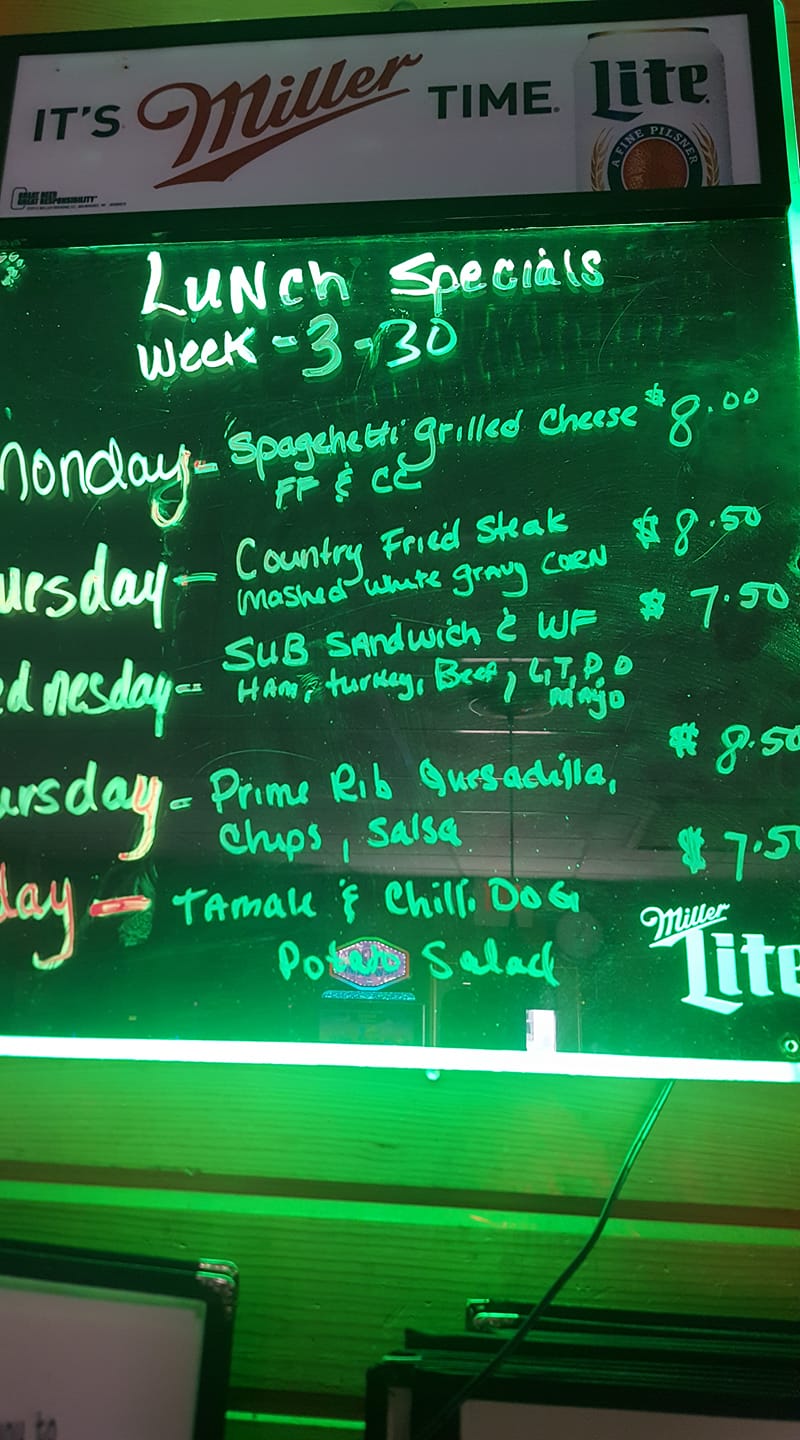 IT'S Miller TIME. Lite
A FINE PILSNER
GREAT BEER
GREAT RESPONSIBILITY
Lunch Specials
Week - 3-30
Monday - Spagehetti grilled cheese $8.00
FF & CC
uesday - Country Fried Steak $8.50
Mashed white gravy CORN
ednesday - SUB SANDWICH & WF $7.50
HAM, turkey, Beef, L,T,P,O
mayo
ursday - Prime Rib Quesadilla, $8.50
Chips, Salsa
day - TAmale & Chili DOG $7.5
Potato Salad
Miller
Lite
you to